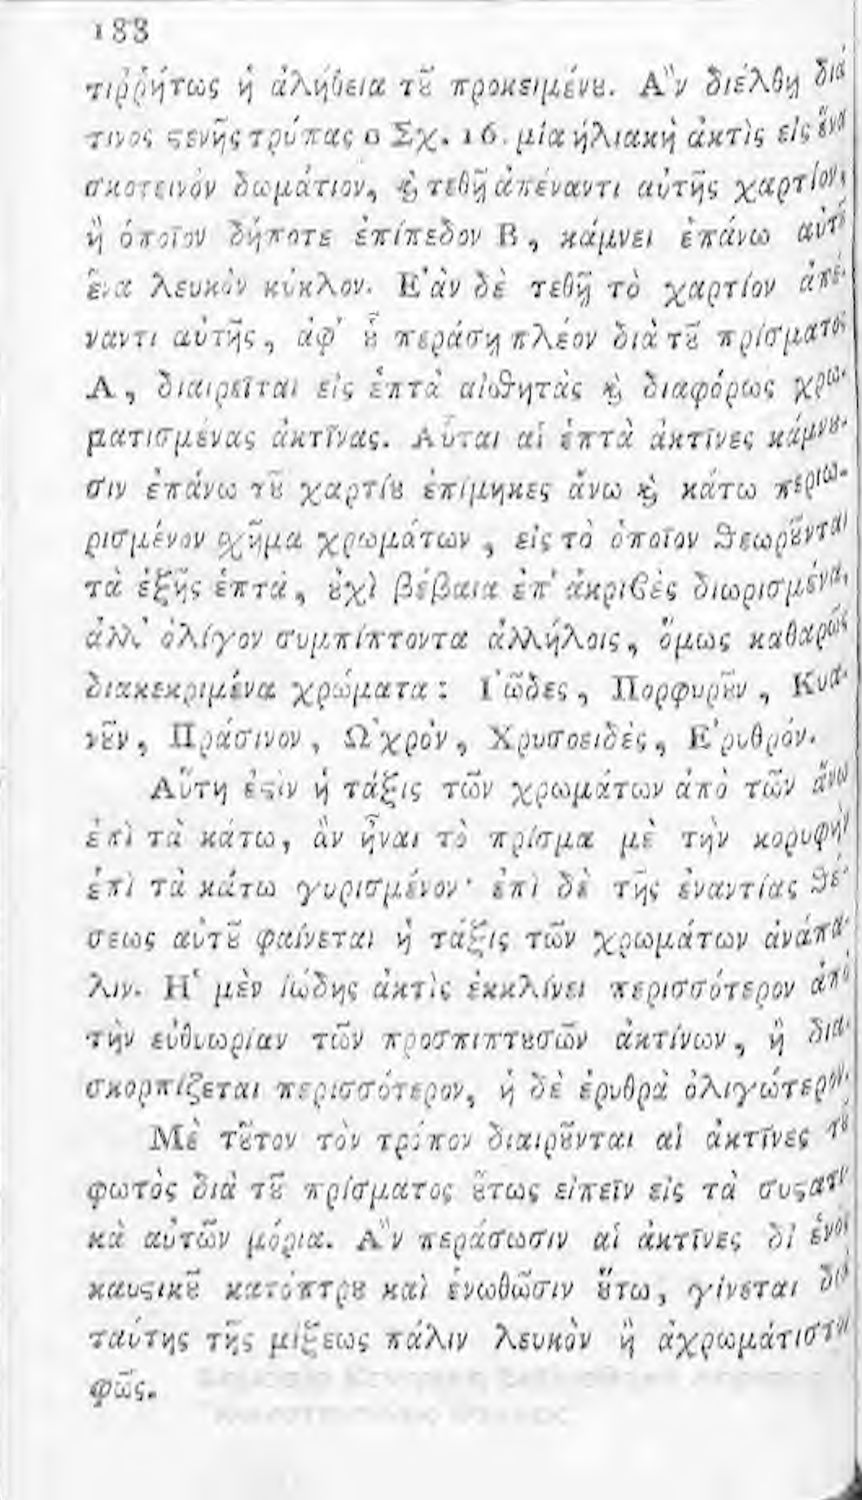 188
τιῤῥήτως ἡ ἀλήθεια τȣ͂ προκειμένȣ. Α῍ν διέλθῃ διά
τινος ϛενῆς τρύπας ο Σχ. 16. μία ἡλιακὴ ἀκτὶς εἰς ἕνα
σκοτεινὸν δωμάτιον, ϗ̀ τεθῇ ἀπέναντι αὐτῆς χαρτίον,
ἢ ὁποῖον δήποτε ἐπίπεδον Β, κάμνει ἐπάνω αὐτȣ͂
ἕνα λευκὸν κύκλον. Ε᾿ὰν δὲ τεθῇ τὸ χαρτίον ἀπέ-
ναντι αὐτῆς, ἀφ' ȣ͗͂ περάσῃ πλέον διὰ τȣ͂ πρίσματος
Α, διαιρεῖται εἰς ἑπτὰ αἰσθητὰς ϗ̀ διαφόρως χρω-
ματισμένας ἀκτῖνας. Αὗται αἱ ἑπτὰ ἀκτῖνες κάμνȣ-
σιν ἐπάνω τȣ͂ χαρτίȣ ἐπίμηκες ἄνω ϗ̀ κάτω περιω-
ρισμένον σχῆμα χρωμάτων, εἰς τὸ ὁποῖον θεωρȣ͂νται
τὰ ἑξῆς ἑπτὰ, ȣ̓χὶ βέβαια ἐπ' ἀκριβὲς διωρισμένα,
ἀλλ' ὀλίγον συμπίπτοντα ἀλλήλοις, ὅμως καθαρῶς
διακεκριμένα χρώματα: Ι᾿ῶδες, Πορφυρȣ͂ν, Κυα-
νȣ͂ν, Πράσινον, Ω᾿χρὸν, Χρυσοειδὲς, Ε᾿ρυθρόν.
Αὕτη ἐϛὶν ἡ τάξις τῶν χρωμάτων ἀπὸ τῶν ἄνω
ἐπὶ τὰ κάτω, ἂν ἦναι τὸ πρίσμα μὲ τὴν κορυφὴν
ἐπὶ τὰ κάτω γυρισμένον· ἐπὶ δὲ τῆς ἐναντίας θέ-
σεως αὐτȣ͂ φαίνεται ἡ τάξις τῶν χρωμάτων ἀνάπα-
λιν. Η῾ μὲν ἰώδης ἀκτὶς ἐκκλίνει περισσότερον ἀπὸ
τὴν εὐθυωρίαν τῶν προσπιπτȣσῶν ἀκτίνων, ἢ δια-
σκορπίζεται περισσότερον, ἡ δὲ ἐρυθρὰ ὀλιγώτερον.
Μὲ τȣ͂τον τὸν τρόπον διαιρȣ͂νται αἱ ἀκτῖνες τȣ͂
φωτὸς διὰ τȣ͂ πρίσματος ȣ̔́τως εἰπεῖν εἰς τὰ συϛατι-
κὰ αὐτῶν μόρια. Α῍ν περάσωσιν αἱ ἀκτῖνες δι' ἑνὸς
καυϛικȣ͂ κατόπτρȣ καὶ ἑνωθῶσιν ȣ̔́τω, γίνεται διὰ
ταύτης τῆς μίξεως πάλιν λευκὸν ἢ ἀχρωμάτιστον
φῶς.